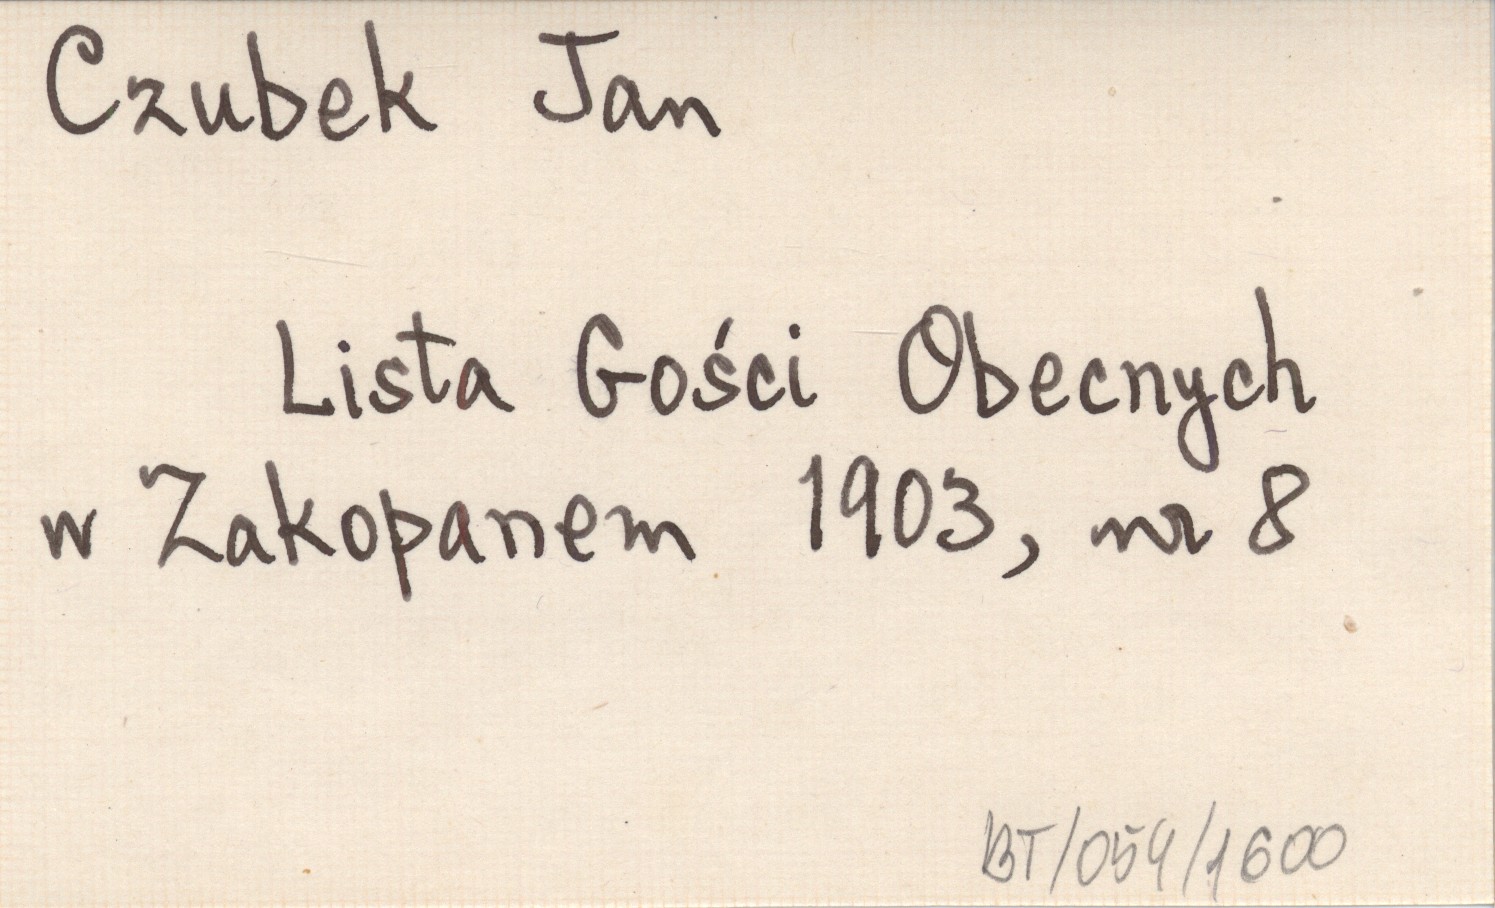 Czubek Jan
Lista Gości Obecnych
w Zakopanem 1903, nr 8
BT/059/1600